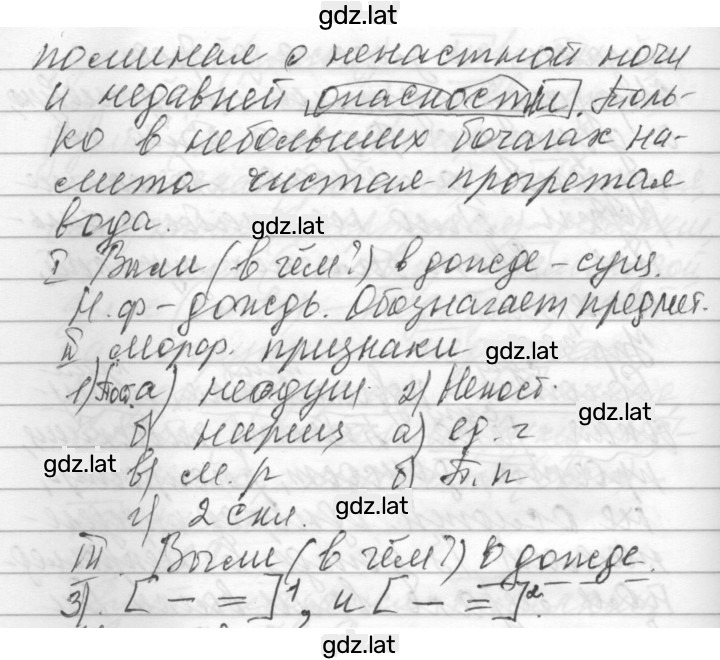 gdz.lat
поминал о ненастной ночи
и недавней опасности. Толь-
ко в небольших бочагах на-
мета чистая прогретая
вода.
gdz.lat
I Выли (в чём?) в дожде - сущ.
Н.ф - дождь. Обозначает предмет.
II морф. признаки
gdz.lat
1) Пост. а) неодуш. 2) Непост.
gdz.lat
б) нариц а) ед. ч
gdz.lat
в) м. р б) П. п
г) 2 скл.
gdz.lat
III Выли (в чём?) в дожде.
3). [ — = ]¹, и [ — = ]².
gdz.lat